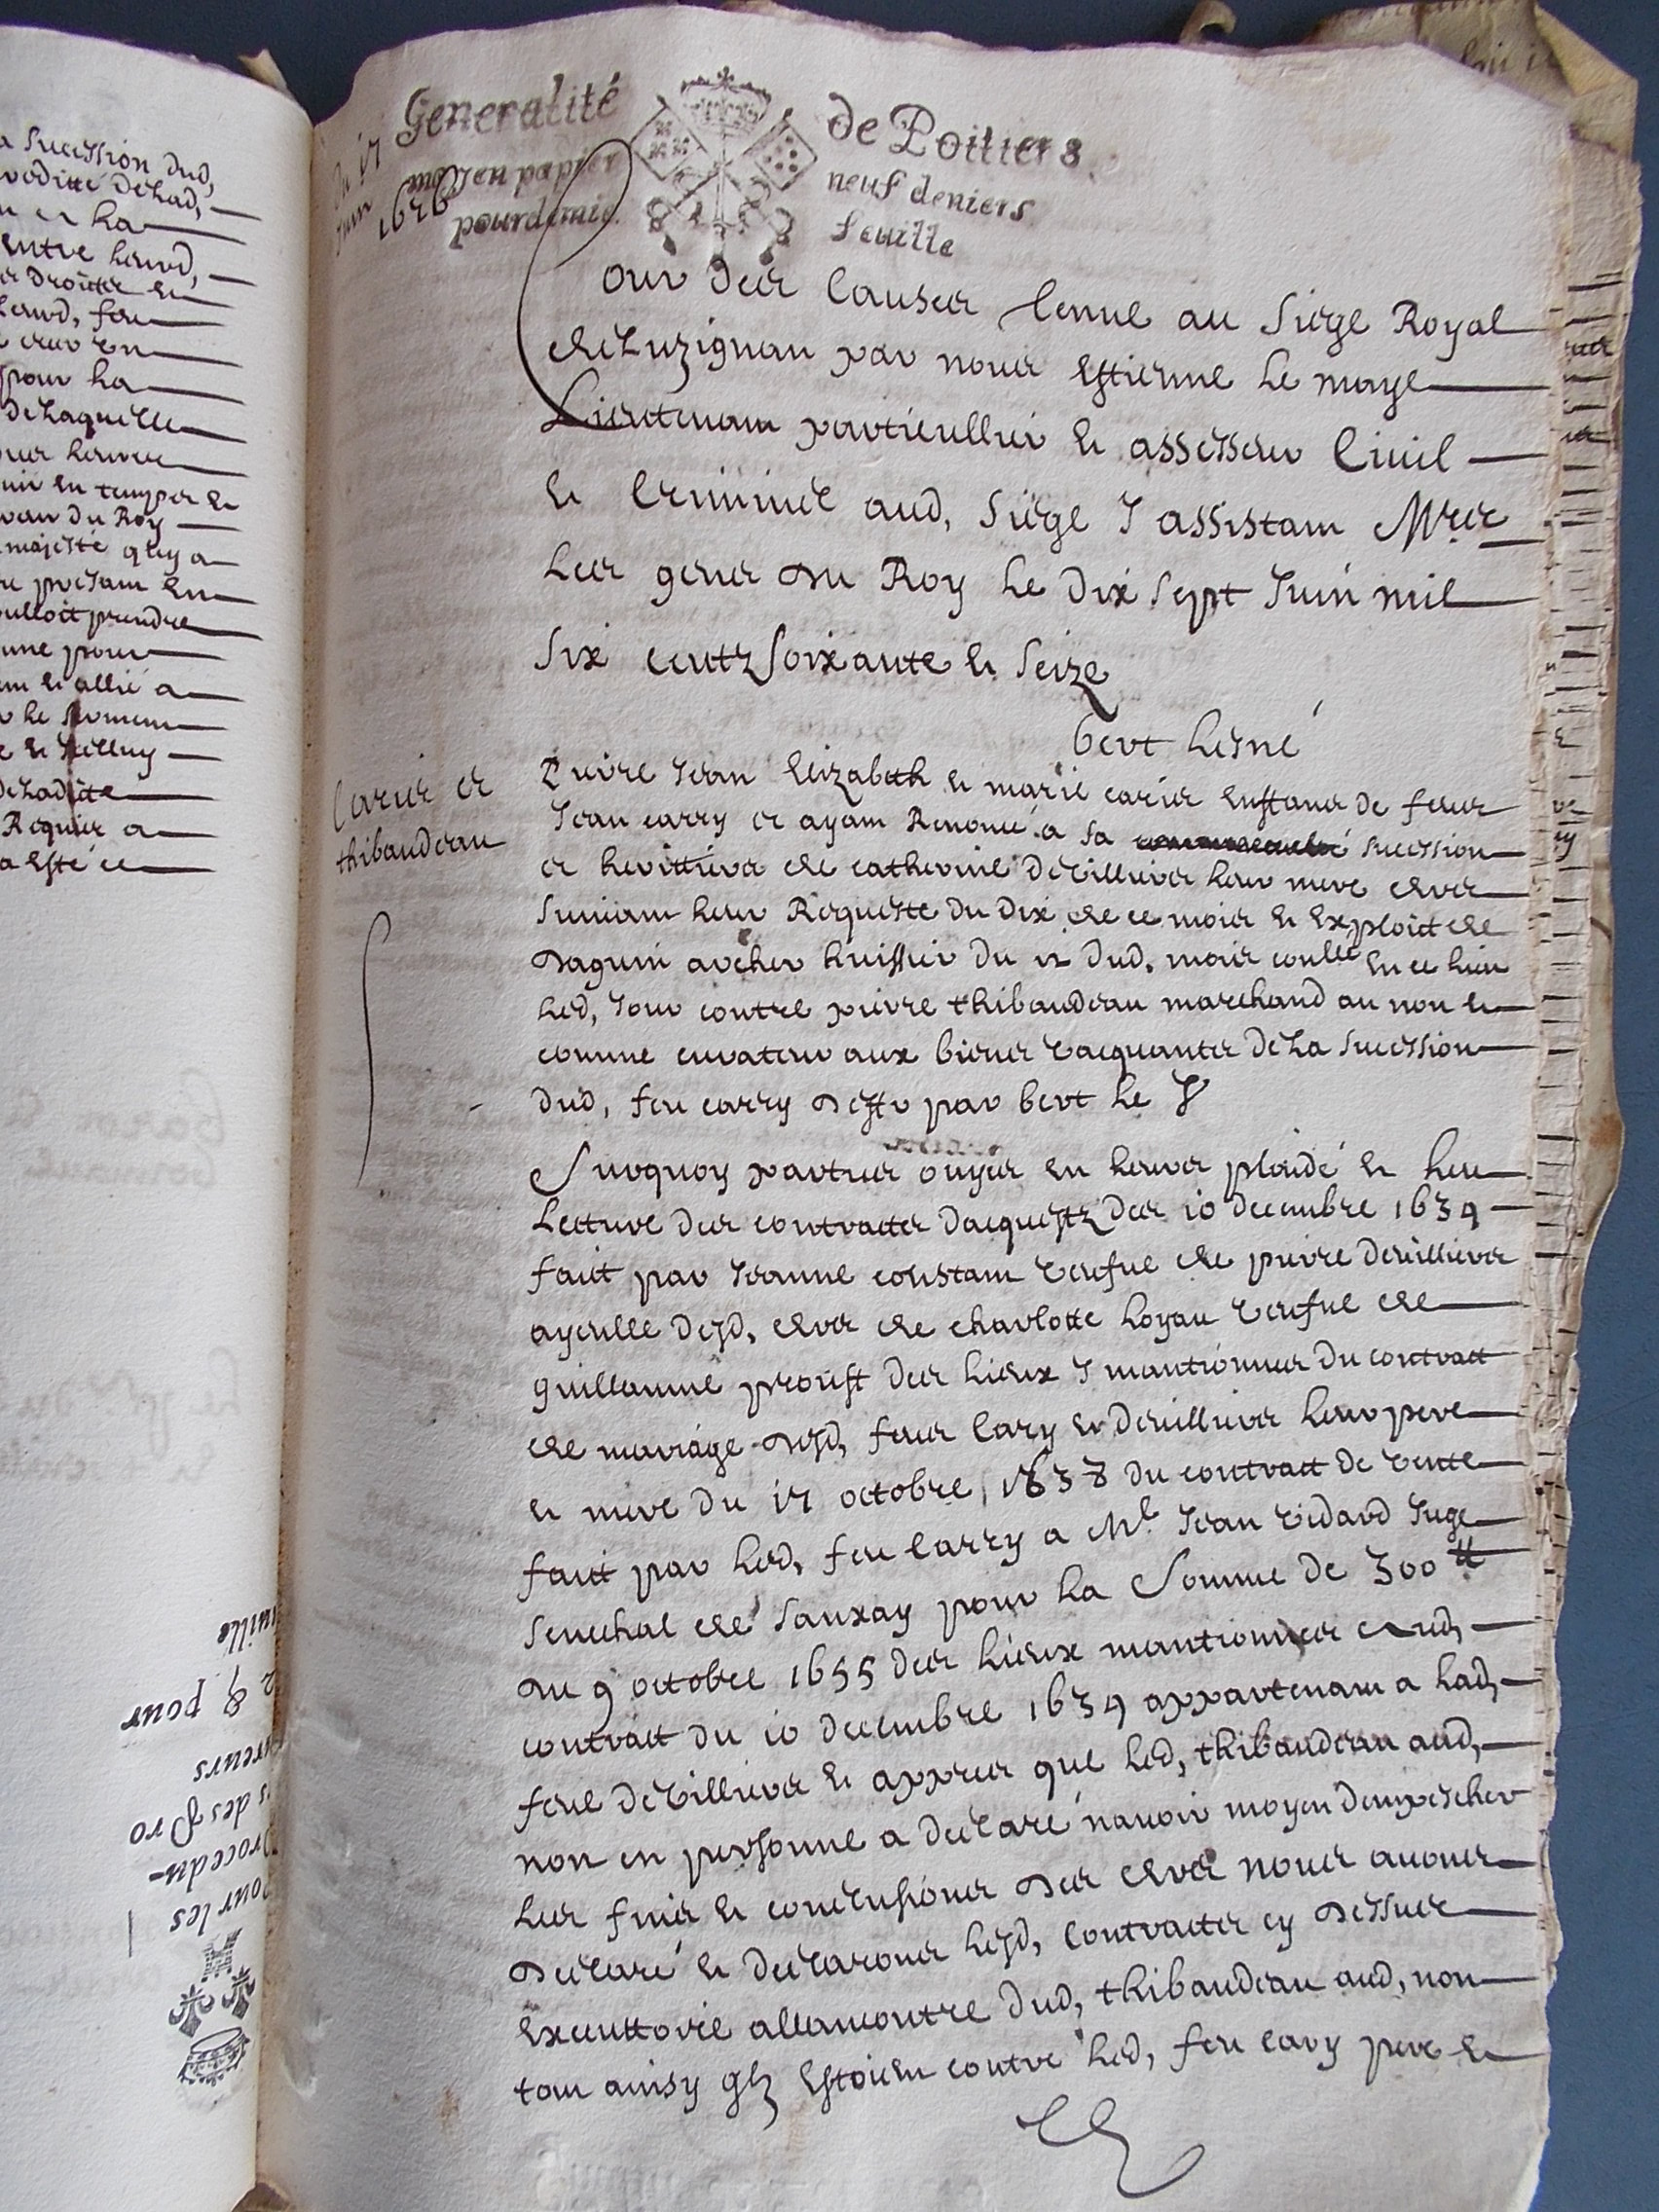 a succession dud,
veritté de lad,
en la
entre leurd,
droitte et
leurd, feu
pour la
de laquelle
leur
en temps et
du Roy
majesté q luy a
prestant en
voulloit prendre
une pour
et allié a
le serment
de ladite
Requier a
a esté ce
Pour les
Procedu-
s des Pro
cureurs
& pour
feuille
Generalité de Poitiers
moyen papier neuf deniers
pour demie feuille
du 17
Juin
1676
Jour des Causes tenue au Siege Royal
de Luzignan par nous Estienne le maye
Lieutenant particullier et assesseur Civil
et Criminel aud, Siege y assistant Mrs
les gens du Roy le dix sept Juin mil
six centz soixante et seize
bert lesné
Caries et
thibaudeau
Pierre Jean Elizabeth et marie caries enffans de feus
Jean carry et ayant Renoncé a sa succession
et herittiers de catherine devilliers leur mere drs
suivant leur Requeste du dix de ce mois et exploit de
daguin archer huissier du 12 dud, mois coullé en ce lieu
led, Jour contre pierre thibaudeau marchand au non et
comme curateur aux biens vacquantes de la succession
dud, feu carry deffr par bert le J
Surquoy parties ouyes en leurs plaidé et leu
Lecture des contractes dacquestz des 10 decembre 1634
fait par Jeanne constant veufue de pierre deuilliers
ayeulle desd, drs de charlotte loyau veufue de
guillaume proust des lieux y mantionnes du contract
de mariage desd, feus Cary et deuilliers leur pere
et mere du 17 octobre 1638 du contract de vente
fait par led, feu Carry a Me Jean vidard Juge
senechal de sanxay pour la somme de 300 tt
du 9 octobre 1655 des lieux mantionnes aud,
contract du 10 decembre 1634 appartenant a lad,
feue devilliers et appres que led, thibaudeau aud,
non en personne a declaré nauoir moyen dempescher
les fins et conclusions des drs nous auons
declaré et declarons lesd, contractes cy dessus
executtoire allancontre dud, thibaudeau aud, non
tout ainsy qlz Estoient contre led, feu cary pere et